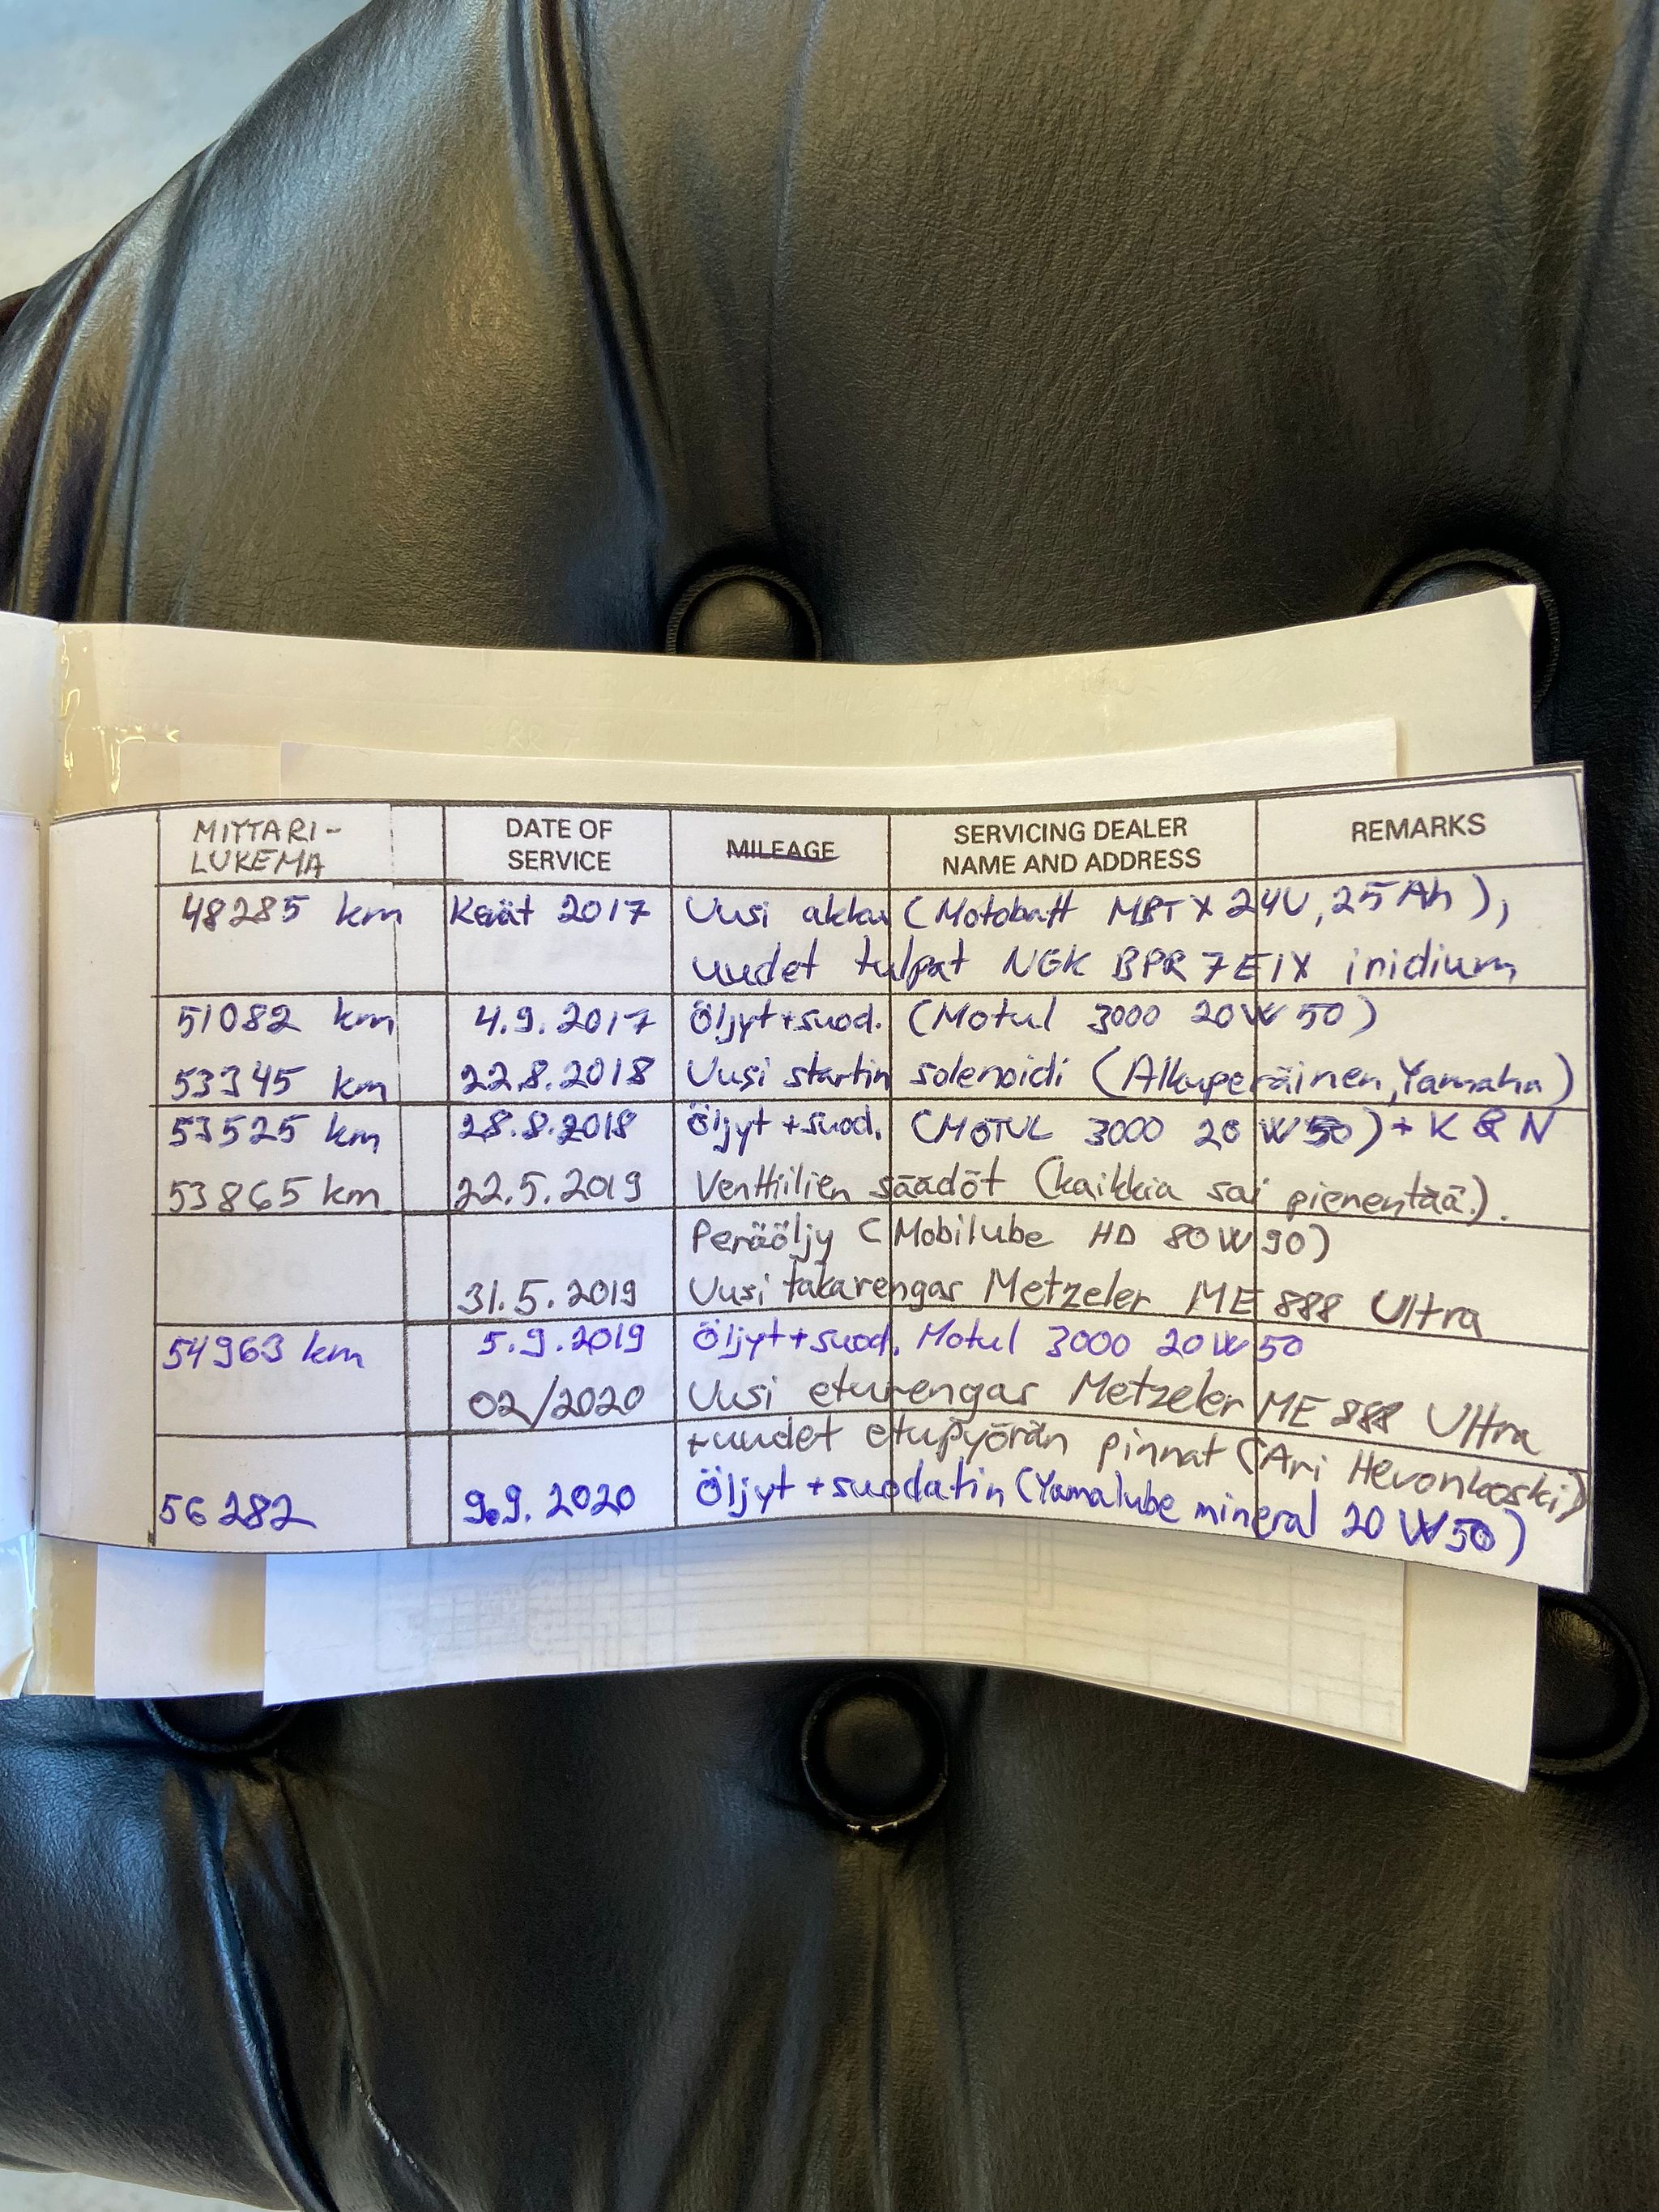 MITTARI- DATE OF MILEAGE SERVICING DEALER REMARKS
LUKEMA SERVICE NAME AND ADDRESS
48285 km Kevät 2017 Uusi akku (Motobatt MBTX24U, 25Ah),
uudet tulpat NGK BPR7EIX iridium
51082 km 4.9.2017 Öljyt+suod. (Motul 3000 20W50)
53345 km 22.8.2018 Uusi startin solenoidi (Alkuperäinen, Yamaha)
53525 km 28.8.2018 Öljyt+suod. (MOTUL 3000 20W50) + K&N
53865 km 22.5.2019 Venttiilien säädöt (kaikkia sai pienentää.).
Peräöljy (Mobilube HD 80W90)
31.5.2019 Uusi takarengas Metzeler ME 888 Ultra
54963 km 5.9.2019 Öljyt+suod. Motul 3000 20W50
02/2020 Uusi eturengas Metzeler ME 888 Ultra
+uudet etupyörän pinnat (Ari Hevonkoski)
56282 9.9.2020 Öljyt+suodatin (Yamalube mineral 20W50)